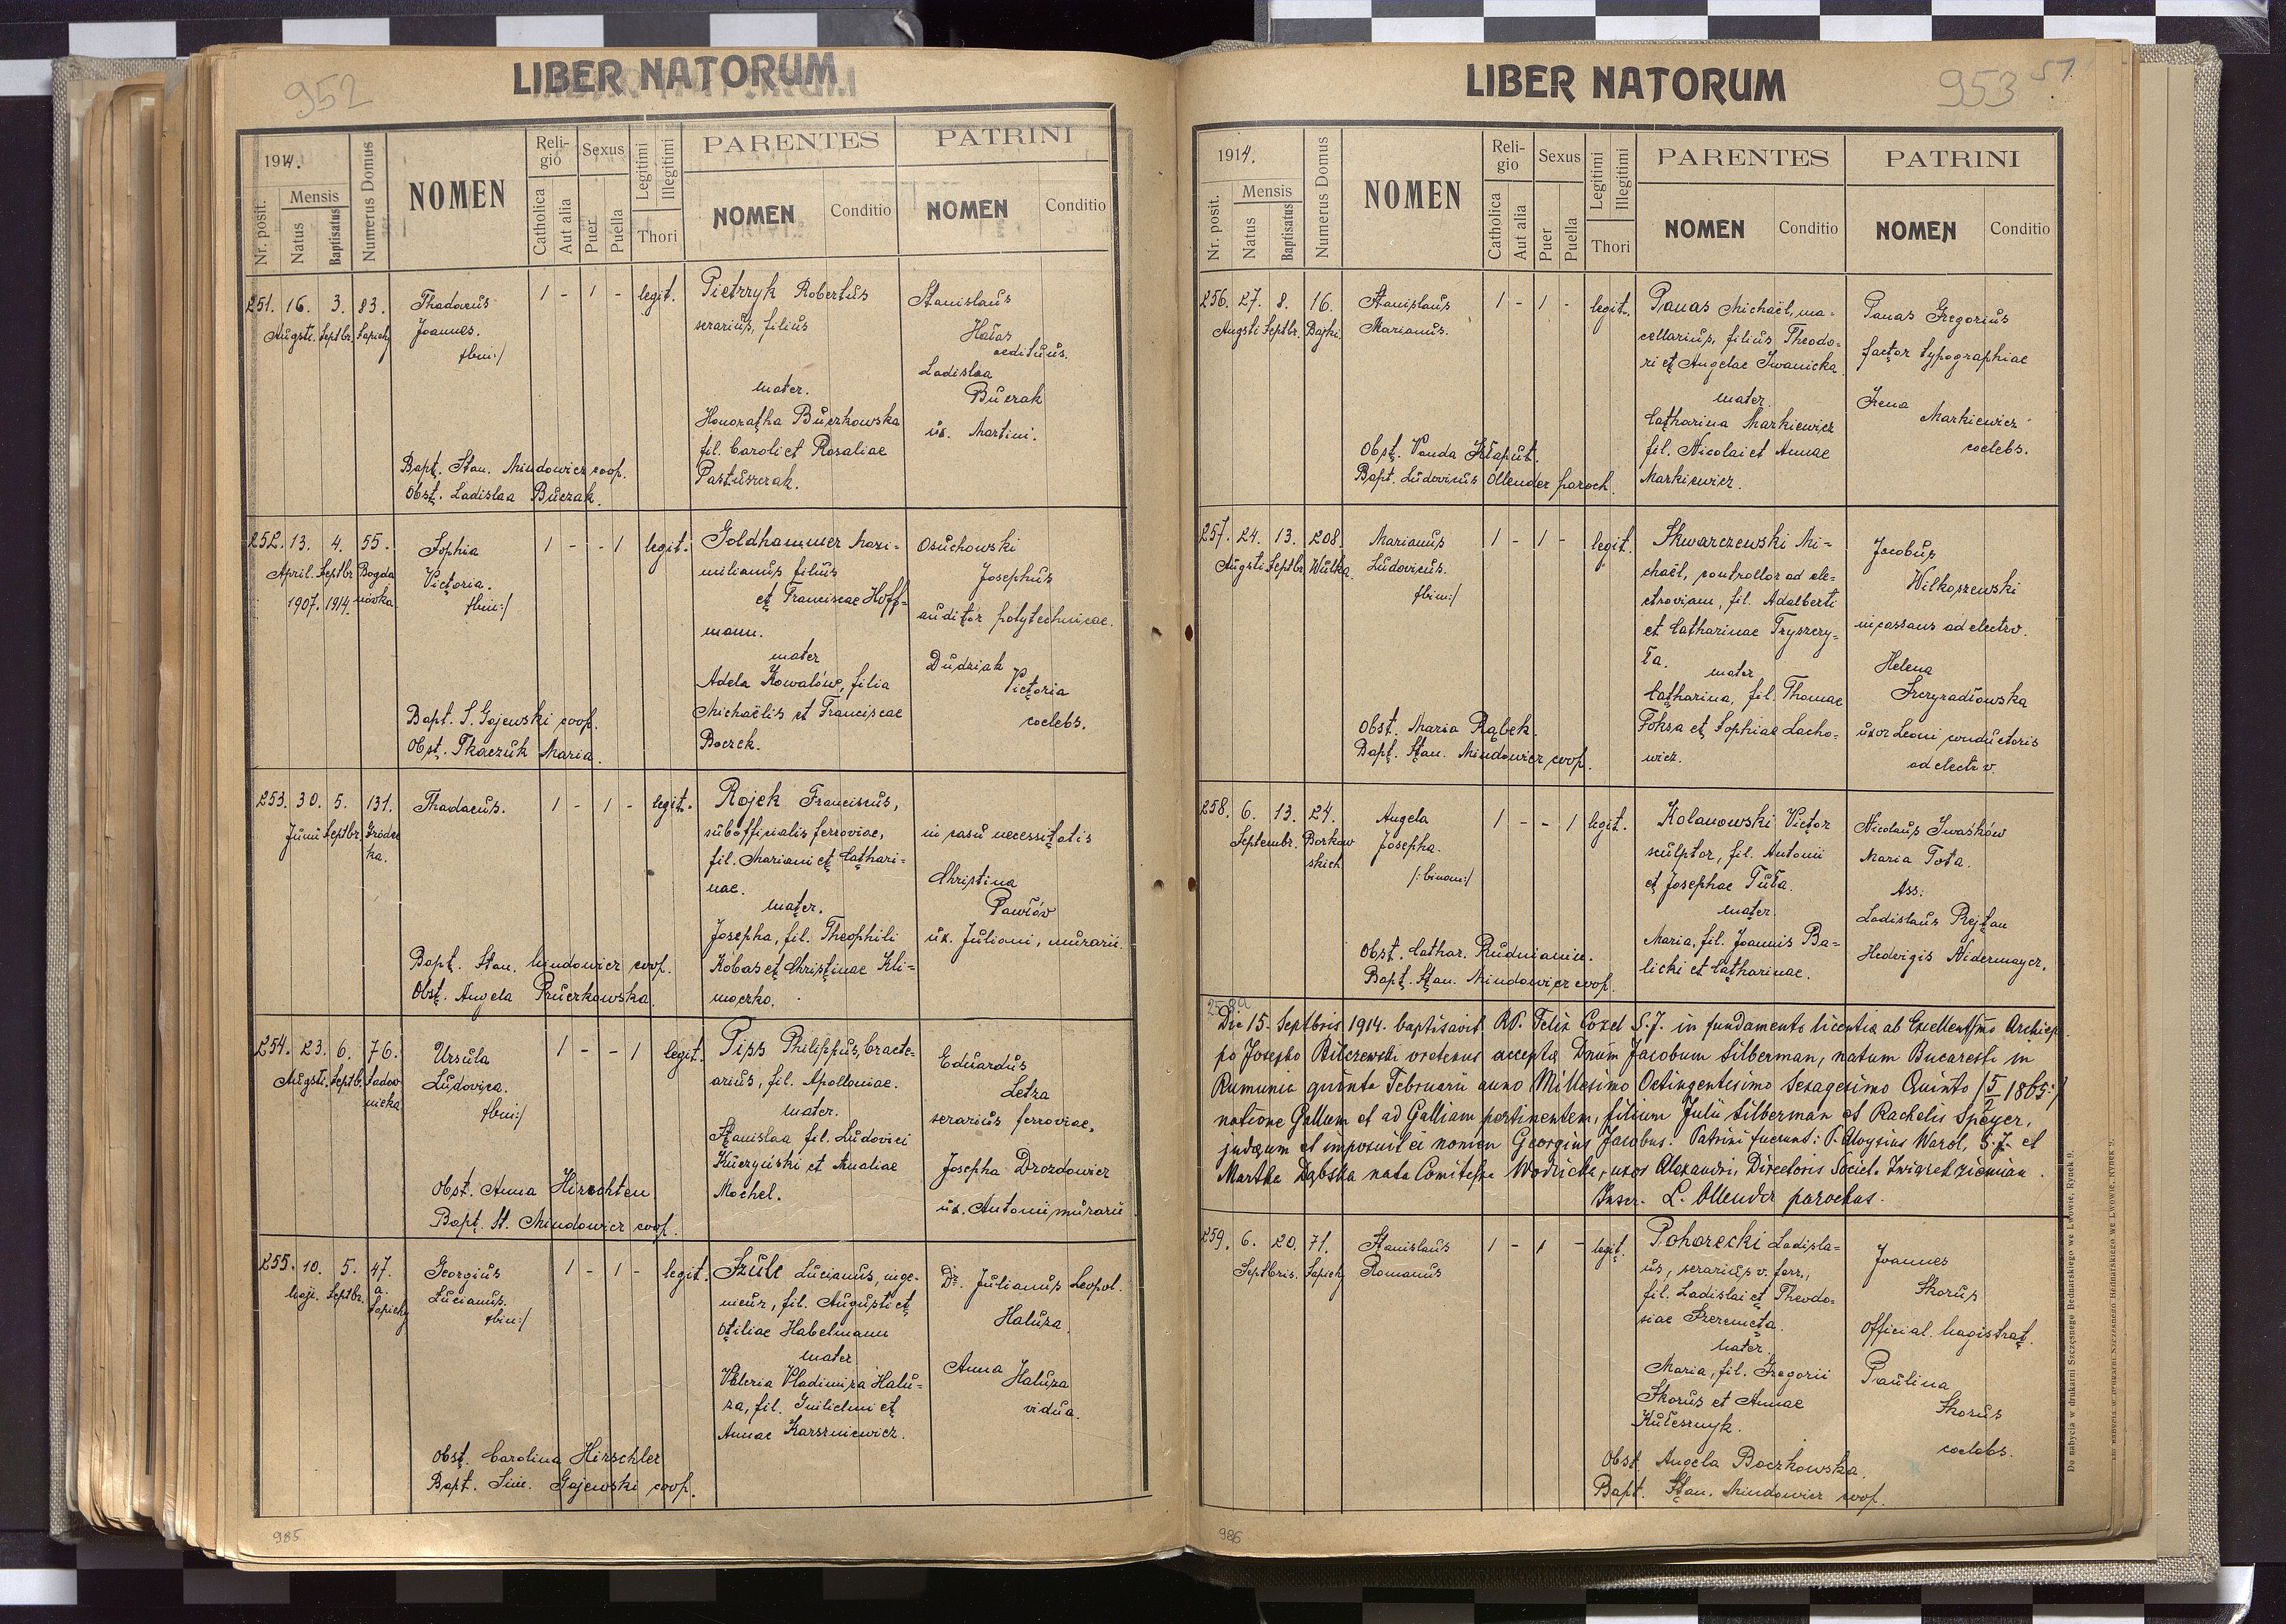 952
LIBER NATORUM
1914.
Nr. posit.
Mensis
Natus
Baptisatus
Numerus Domus
NOMEN
Reli-
gio
Catholica
Aut alia
Sexus
Puer
Puella
Legitimi
Illegitimi
Thori
PARENTES
NOMEN
Conditio
PATRINI
NOMEN
Conditio
251. 16. 3. 83.
Augsti. Septbr. Sapiehy
Thadaeus
Joannes.
/:bin:/
1 - 1 - legit.
Pietrzyk Robertus
serarius, filius
mater.
Honoratha Buczkowska
fil. Caroli et Rosaliae
Pastuszczak.
Stanislaus
Hałas
aedituus.
Ladislaa
Buczak
ux. Martini.
Bapt. Stan. Mindowicz coop.
Obst. Ladislaa Buczak.
252. 13. 4. 55.
April. Septbr. Bogda
1907. 1914. nówka
Sophia
Victoria.
/:bin:/
1 - - 1 legit.
Goldhammer Maxi-
milianus filius
et Franciscae Hoff-
mann.
mater
Adela Kowalów, filia
Michaëlis et Franciscae
Boczek.
Osuchowski
Josephus
auditor polytechnicae.
Dudziak
Victoria
coelebs.
Bapt. S. Gajewski coop.
Obst. Tkaczuk Maria.
253. 30. 5. 131.
Junii Septbr. Gródec
ka.
Thadaeus.
1 - 1 - legit.
Rojek Franciscus,
subofficialis ferroviae,
fil. Mariani et Cathari-
nae.
mater.
Josepha, fil. Theophili
Kobas et Christinae Kli-
moczko.
in casu necessitatis
Christina
Pawłów
ux. Juliani, murarii.
Bapt. Stan. Mindowicz coop.
Obst. Angela Pruczkowska.
254. 23. 6. 76.
Augsti. Septb. Sadow
nicka
Ursula
Ludovica.
/:bin:/
1 - - 1 legit.
Piss Philippus, bracte-
arius, fil. Apolloniae.
mater.
Stanislaa fil. Ludovici
Kuczyński et Amaliae
Mochel.
Eduardus
Letza
serarius ferroviae,
Josepha Drozdowicz
ux. Antonii murarii
Obst. Anna Hirschten
Bapt. St. Mindowicz coop.
255. 10. 5. 47.
Maji. Septbr. a.
Sapiehy
Georgius
Lucianus.
/:bin:/
1 - 1 - legit.
Szulc Lucianus, inge-
nieur, fil. Augusti et
Otiliae Habelmann
mater
Valeria Vladimira Halu-
za, fil. Guilielmi et
Annae Karszniewicz.
Dr. Julianus Leopol.
Haluza.
Anna Haluza
vidua.
Obst. Carolina Hirschler
Bapt. Sim. Gajewski coop.
985
LIBER NATORUM
953 57.
1914.
Nr. posit.
Mensis
Natus
Baptisatus
Numerus Domus
NOMEN
Reli-
gio
Catholica
Aut alia
Sexus
Puer
Puella
Legitimi
Illegitimi
Thori
PARENTES
NOMEN
Conditio
PATRINI
NOMEN
Conditio
256. 27. 8. 16.
Augsti Septbr. Bajki.
Stanislaus
Marianus.
1 - 1 - legit.
Panas Michaël, ma-
cellarius, filius Theodo-
ri et Angelae Iwanicka
mater.
Catharina Markiewicz
fil. Nicolai et Annae
Markiewicz.
Panas Gregorius
factor typographiae
Irena
Markiewicz
coelebs.
Obst. Vanda Kłaput.
Bapt. Ludovicus Ollender paroch.
257. 24. 13. 208.
Augsti Septbr. Wulka.
Marianus
Ludovicus.
/:bin:/
1 - 1 - legit.
Skwarczewski Mi-
chaël, controllor ad ele-
ctroviam, fil. Adalberti
et Catharinae Tryszczy-
ła.
mater
Catharina, fil. Thomae
Foksa et Sophiae Lacho-
wicz.
Jacobus
Wilkoszewski
incassans ad electrv.
Helena
Szczyradłowska
uxor Leoni conductoris
ad electrv.
Obst. Maria Rąbek.
Bapt. Stan. Mindowicz coop.
258. 6. 13. 24.
Septembr. Borkow
skich
Angela
Josepha.
/:binom:/
1 - - 1 legit.
Kolanowski Victor
sculptor, fil. Antonii
et Josephae Tuła.
mater.
Maria, fil. Joannis Ba-
licki et Catharinae.
Nicolaus Iwaśków
Maria Tota.
Ass:
Ladislaus Rejtan
Hedvigis Nidermayer.
Obst. Cathar. Rudnianin.
Bapt. Stan. Mindowicz coop.
258a
Die 15. Septbris 1914. baptisavit RP. Felix Cozel S.J. in fundamento licentia ab Excellentssmo Archiep.
po Josepho Bilczewski oretenus accepta Dnum Jacobum Silberman, natum Bucaresti in
Rumunia quinta Februarii anno Millesimo Octingentesimo Sexagesimo Quinto /5/2 1865:/
natione Gallum et ad Galliam pertinentem, filium Julii Silberman et Rachelis Speyer,
judaeum et imposuit ei nomen Georgius Jacobus: Patrini fuerunt: P. Aloysius Warol, S.J. et
Martha Dąbska nata Comitissa Wodzicka, uxor Alexandri, Directoris Societ. Związek ziemian.
Inscr. L. Ollender parochus.
259. 6. 20. 71.
Septbris. Sapiehy
Stanislaus
Romanus
1 - 1 - legit.
Pohorecki Ladisla-
us, serarius v. ferr.,
fil. Ladislai et Theodo-
siae Szeremeta.
Mater.
Maria, fil. Gregorii
Skorus et Annae
Kułesznyk.
Joannes
Skorus
Official. Magistrat.
Paulina
Skorus
coelebs.
Obst. Angela Boczkowska.
Bapt. Stan. Mindowicz coop.
986
Do nabycia w drukarni Szczęsnego Bednarskiego we Lwowie, Rynek 9.